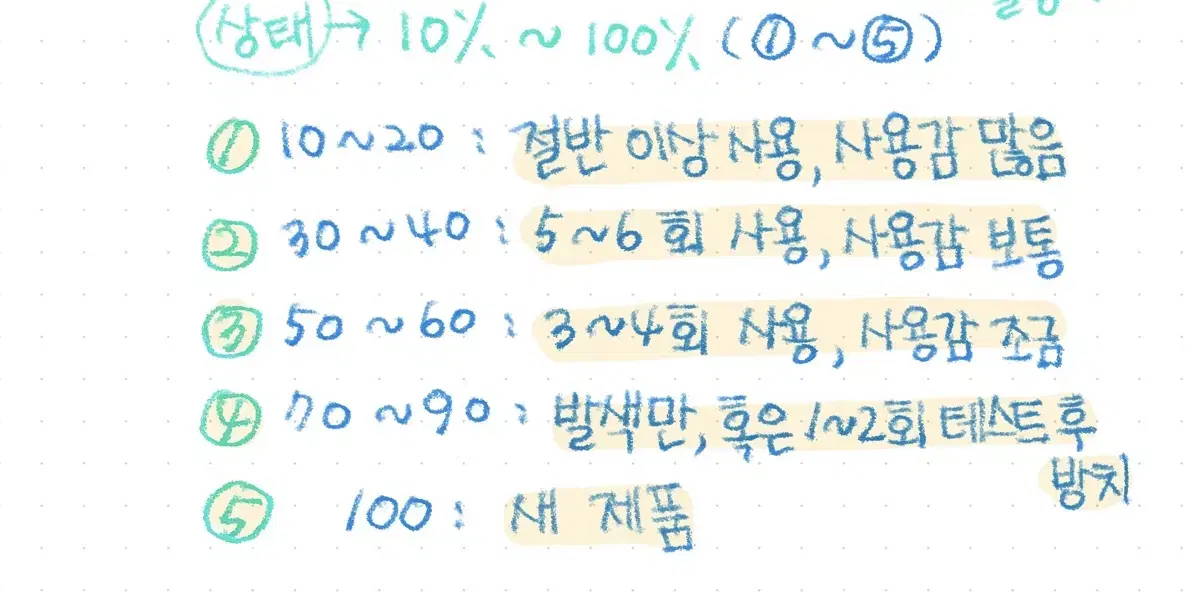 상태 → 10% ~ 100% (① ~ ⑤)
① 10~20 : 절반 이상 사용, 사용감 많음
② 30~40 : 5~6회 사용, 사용감 보통
③ 50~60 : 3~4회 사용, 사용감 조금
④ 70~90 : 발색만, 혹은 1~2회 테스트 후
방치
⑤ 100 : 새 제품